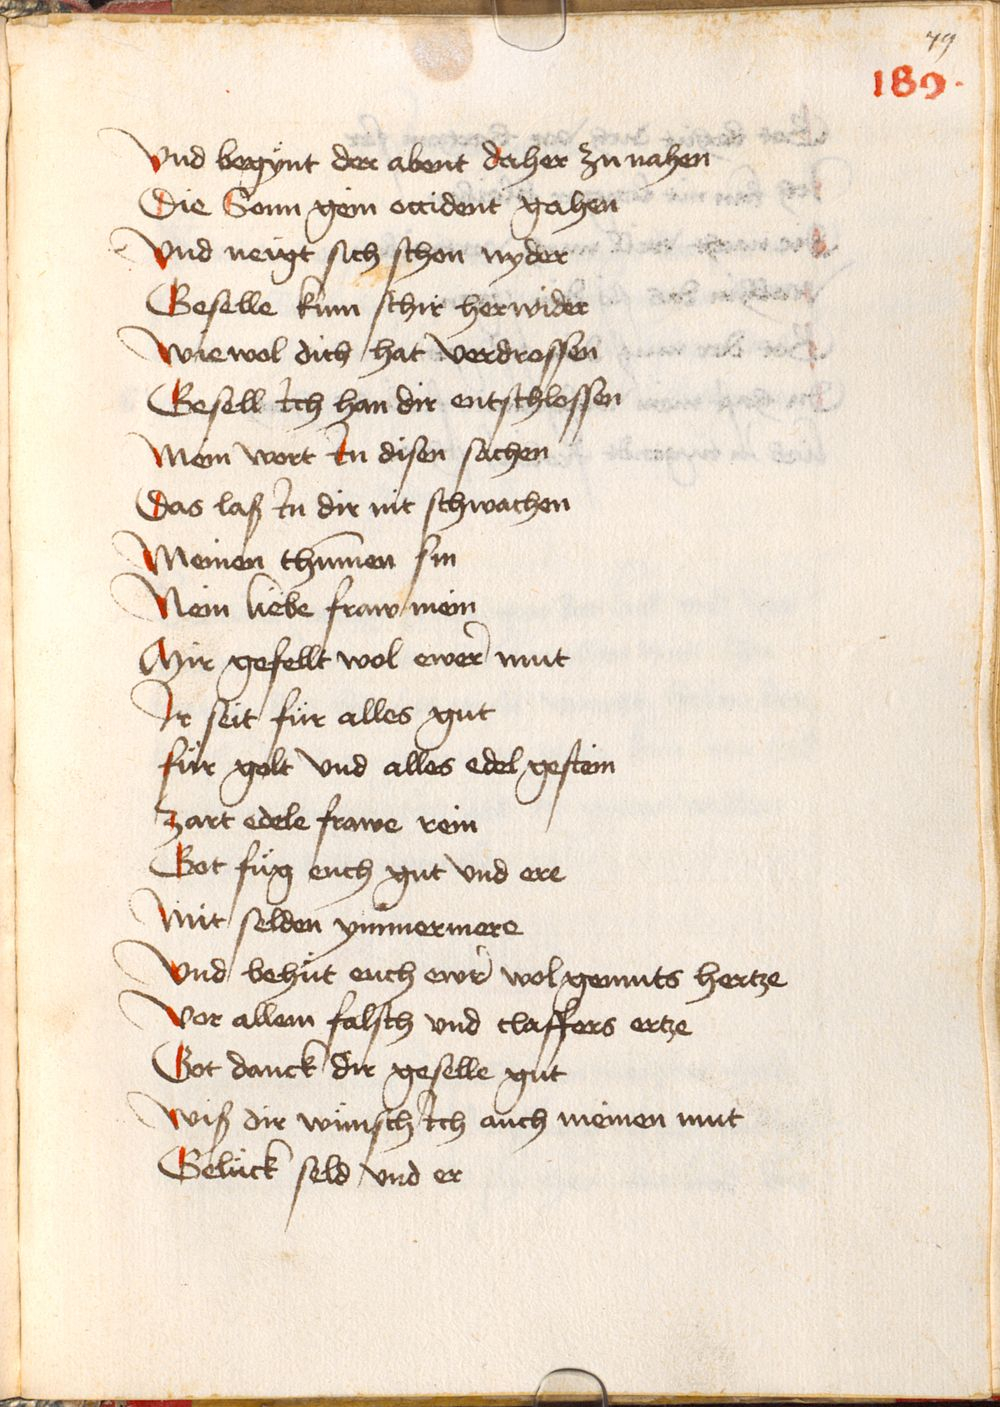 79
189.
Vnd begynt der abent daher zu nahen
Die Sonn gein occident gahen
Vnd neigt sich schon nyder
Geselle kum schir herwider
Wiewol dich hat verdrossen
Gesell Ich han dir entschlossen
Mein wort In disen sachen
Das laß In dir nit schwachen
Meinen thummen sin
Nein liebe fraw mein
Mir gefellt wol ewer mut
Ir seit für alles gut
für golt vnd alles edel gestein
Zart edele frawe rein
Got füg euch gut vnd ere
Mit selden ymmermere
Vnd behüt euch ewr wolgemuts hertze
Vor allem falsch vnd claffers ertze
Got danck dir geselle gut
Wiß dir wünsch Ich auch meinen mut
Gelück seld vnd er